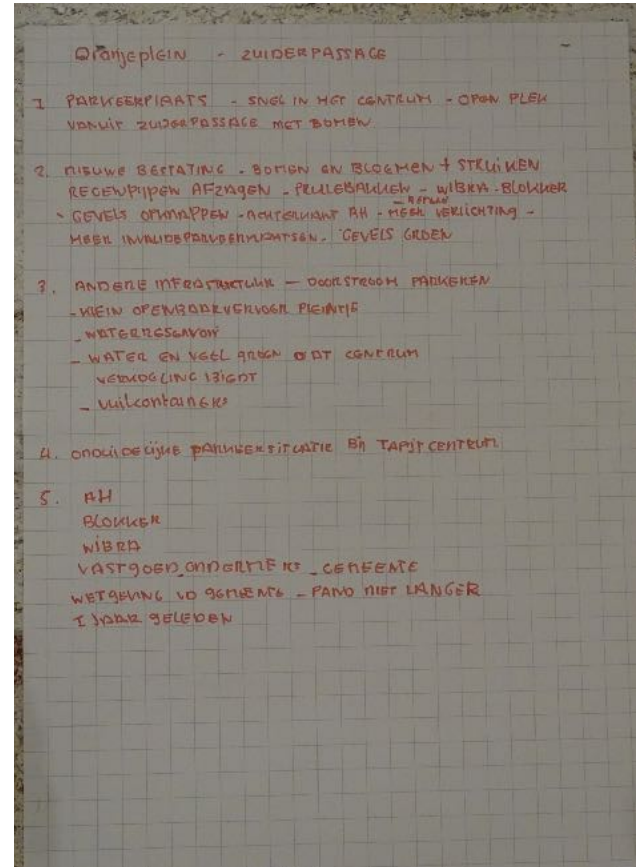 Oranjeplein - ZUIDERPASSAGE
1 PARKEERPLAATS - SNEL IN HET CENTRUM - OPEN PLEK
VANUIT ZUIDERPASSAGE MET BOMEN
2. NIEUWE BESTRATING - BOMEN EN BLOEMEN + STRUIKEN
REGENPIJPEN AFZAGEN - PRULLEBAKKEN - WIBRA - BLOKKER
- GEVELS OPKNAPPEN - ACHTERKANT AH - MEER VERLICHTING -
MEER INVALIDEPARKEERPLAATSEN. GEVELS GROEN
3. ANDERE INFRASTRUCTUUR - DOORSTROOM PARKEREN
- KLEIN OPENBAARVERVOER PLEINTJE
- WATERRESERVOIR
- WATER EN VEEL GROEN DAT CENTRUM
VERKOELING BIEDT
- vuilcontainers
4. ONDUIDELIJKE PARKEERSITUATIE BIJ TAPIJTCENTRUM
5. AH
BLOKKER
WIBRA
VASTGOED ONDERNEMERS - GEMEENTE
WETGEVING VD GEMEENTE - PAND NIET LANGER
1 JAAR GELEDEN